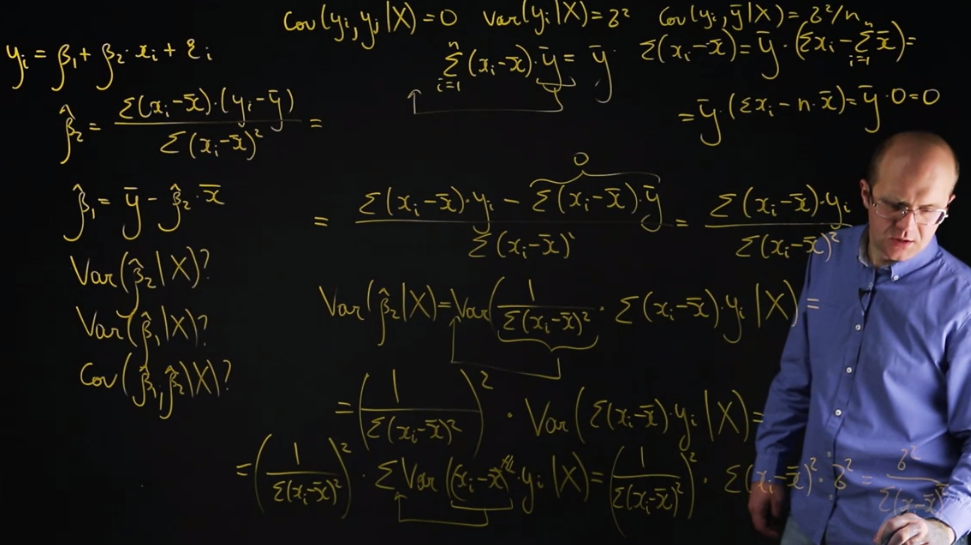 Cov(yᵢ,yⱼ|X)=0 Var(yᵢ|X)=σ² Cov(yᵢ,ȳ|X)=σ²/n
yᵢ = β₁ + β₂·xᵢ + εᵢ
Σᵢ₌₁ⁿ(xᵢ-x̄)·ȳ = ȳ Σ(xᵢ-x̄) = ȳ·(Σxᵢ - Σᵢ₌₁ⁿx̄) =
= ȳ·(Σxᵢ - n·x̄) = ȳ·0 = 0
β̂₂ = Σ(xᵢ-x̄)·(yᵢ-ȳ) / Σ(xᵢ-x̄)² =
0
= (Σ(xᵢ-x̄)·yᵢ - Σ(xᵢ-x̄)·ȳ) / Σ(xᵢ-x̄)² = Σ(xᵢ-x̄)·yᵢ / Σ(xᵢ-x̄)²
β̂₁ = ȳ - β̂₂·x̄
Var(β̂₂|X)?
Var(β̂₁|X)?
Cov(β̂₁,β̂₂|X)?
Var(β̂₂|X) = Var(1/Σ(xᵢ-x̄)² · Σ(xᵢ-x̄)·yᵢ|X) =
= (1/Σ(xᵢ-x̄)²)² · Var(Σ(xᵢ-x̄)·yᵢ|X) =
= (1/Σ(xᵢ-x̄)²)² · ΣVar((xᵢ-x̄)·yᵢ|X) = (1/Σ(xᵢ-x̄)²)² · Σ(xᵢ-x̄)²·σ² = σ²/Σ(xᵢ-x̄)²